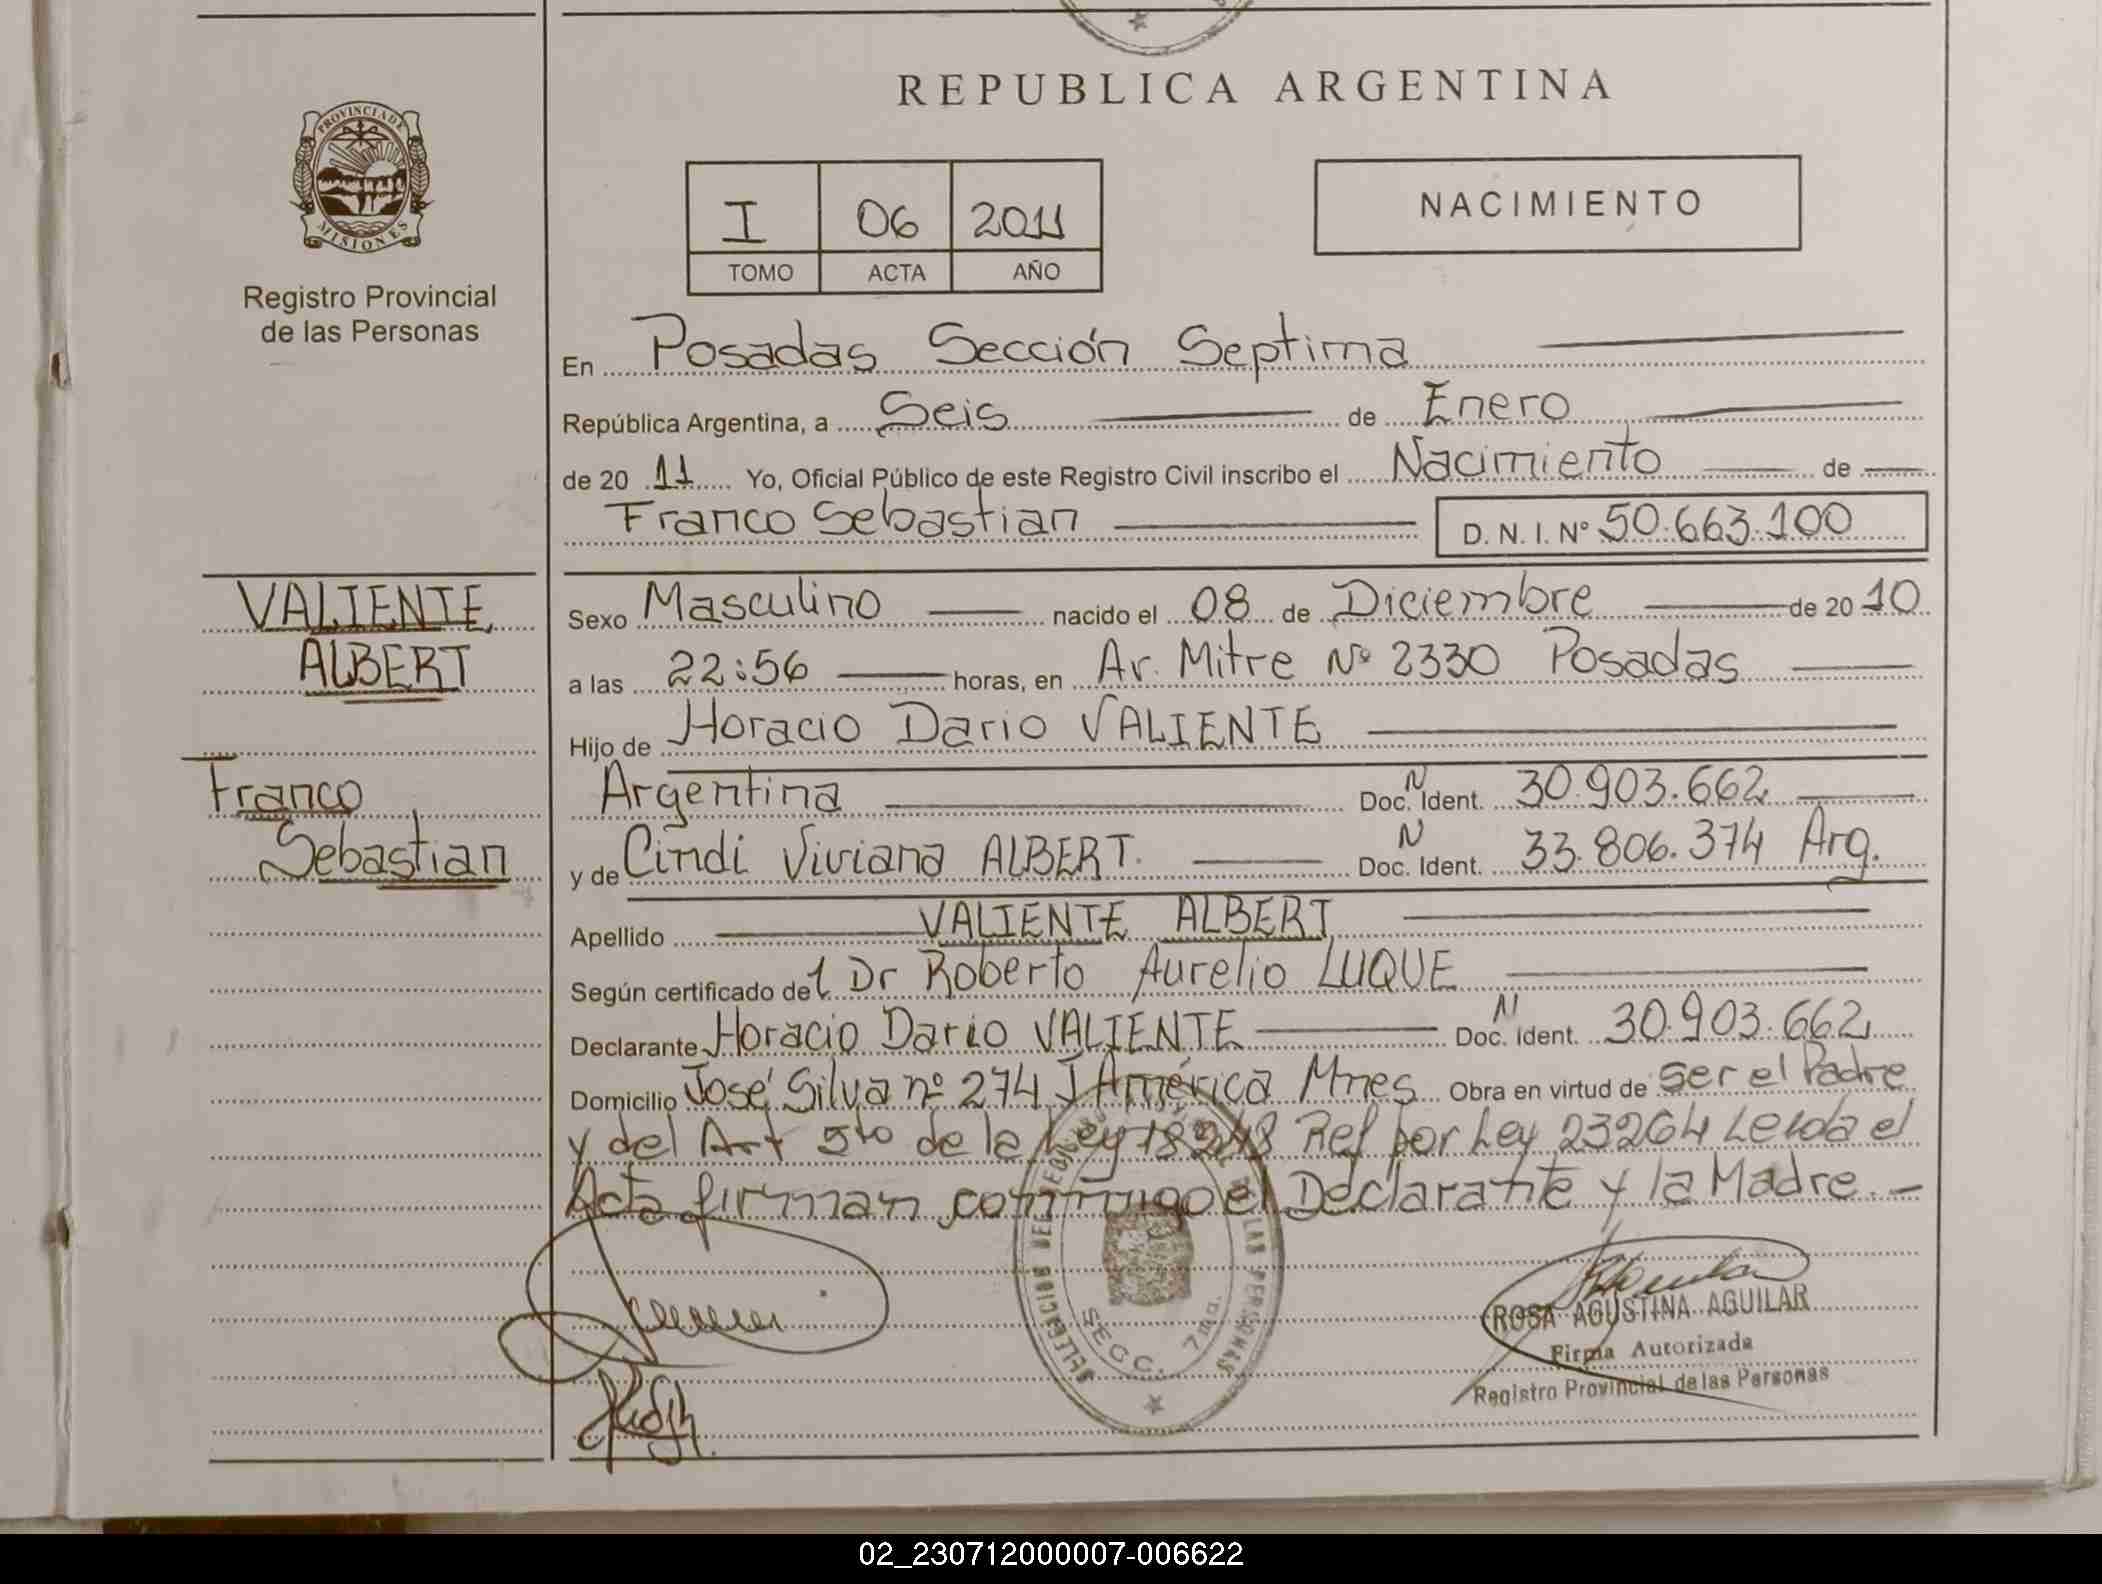 REPUBLICA ARGENTINA
PROVINCIA DE
MISIONES
Registro Provincial
de las Personas
I 06 2011
TOMO ACTA AÑO
NACIMIENTO
En Posadas Sección Septima
República Argentina, a Seis de Enero
de 20 11 Yo, Oficial Público de este Registro Civil inscribo el Nacimiento de
Franco Sebastian D. N. I. Nº 50.663.100
VALIENTE
ALBERT
Franco
Sebastian
Sexo Masculino nacido el 08 de Diciembre de 20 10
a las 22:56 horas, en Av. Mitre Nº 2330 Posadas
Hijo de Horacio Dario VALIENTE
Argentina Doc. N Ident. 30.903.662
y de Cindi Viviana ALBERT. Doc. N Ident. 33.806.374 Arg.
Apellido VALIENTE ALBERT
Según certificado del Dr Roberto Aurelio LUQUE
Declarante Horacio Dario VALIENTE Doc. N Ident. 30.903.662
Domicilio José Silva nº 274 J América Mnes Obra en virtud de ser el Padre
y del Art 5to de la Ley 18248 Ref por Ley 23264 Leida el
Acta firman conmigo el Declarante y la Madre.-
DE LAS PERSONAS
SECC. 7ma.
ROSA AGUSTINA AGUILAR
Firma Autorizada
Registro Provincial de las Personas
02_230712000007-006622